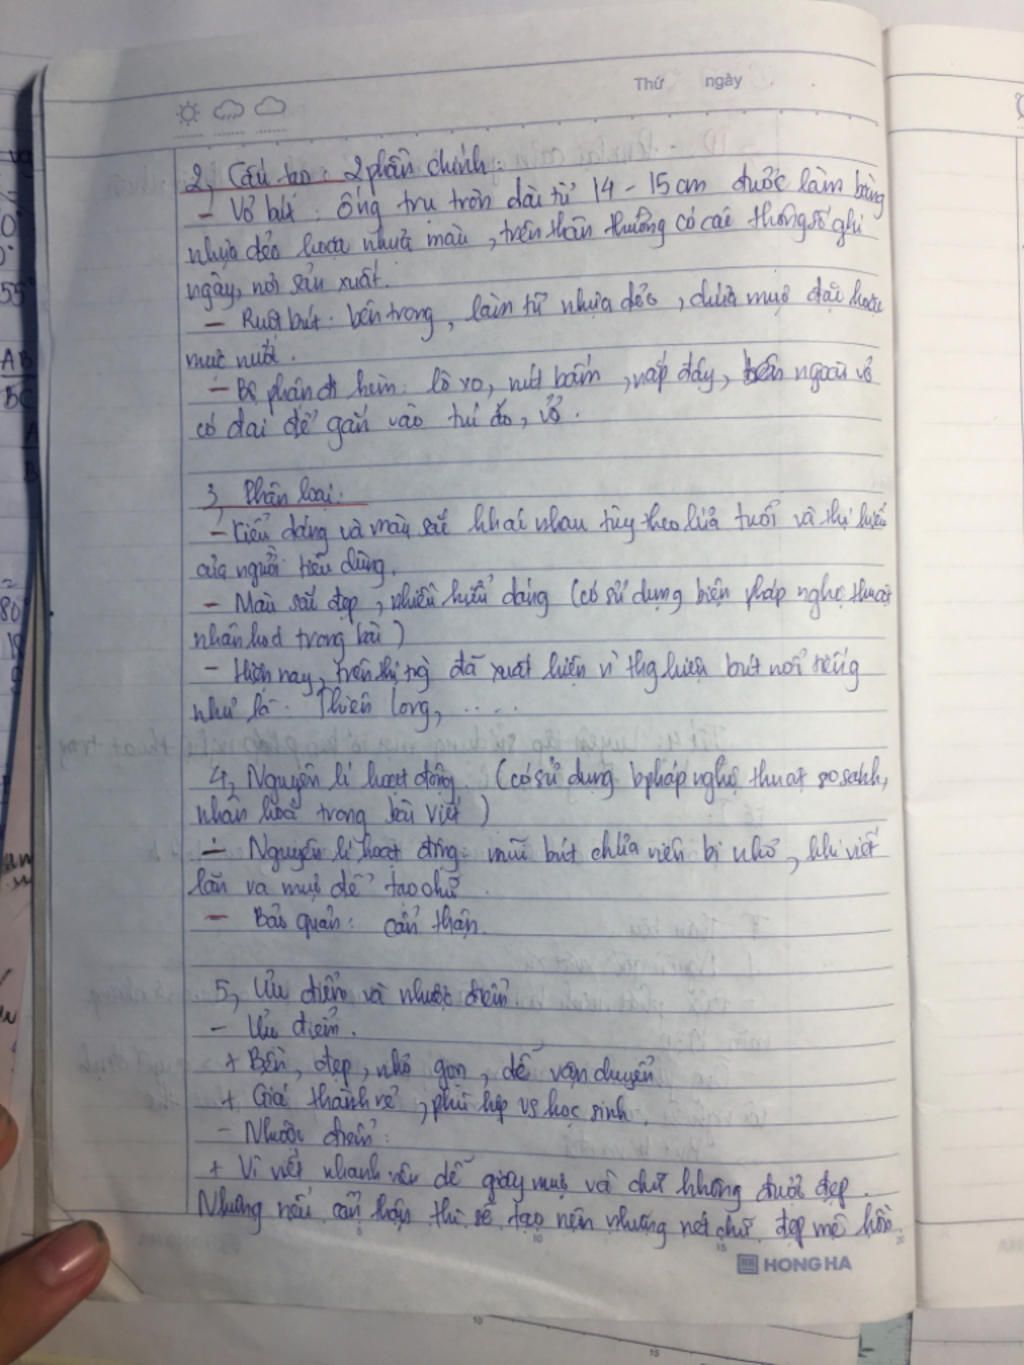 Thứ ngày
2, Cấu tạo: 2 phần chính:
- Vỏ bút: ống trụ tròn dài từ 14 - 15 cm được làm bằng
nhựa dẻo hoặc nhựa màu, trên thân thường có các thông số ghi
ngày, nơi sản xuất.
- Ruột bút: bên trong, làm từ nhựa dẻo, chứa mực đặc hoặc
mực nước.
- Bộ phận đi kèm: lò xo, nút bấm, nắp đậy, bên ngoài vỏ
có đai để gắn vào túi áo, vở.
3, Phân loại:
- Kiểu dáng và màu sắc khác nhau tùy theo lứa tuổi và thị hiếu
của người tiêu dùng.
- Màu sắc đẹp, nhiều kiểu dáng (có sử dụng biện pháp nghệ thuật
nhân hoá trong bài)
- Hiện nay, trên thị trg đã xuất hiện thg hiệu bút nổi tiếng
như là: Thiên Long, .....
4, Nguyên lí hoạt động. (có sử dụng b pháp nghệ thuật so sánh,
nhân hoá trong bài viết)
- Nguyên lí hoạt động: mũi bút chứa viên bi nhỏ, khi viết
lăn ra mực để tạo chữ.
- Bảo quản: cẩn thận.
5, Ưu điểm và nhược điểm.
- Ưu điểm.
+ Bền, đẹp, nhỏ gọn, dễ vận chuyển
+ Giá thành rẻ, phù hợp vs học sinh.
- Nhược điểm:
+ Vì viết nhanh nên dễ giây mực và chữ không được đẹp.
Nhưng nếu cẩn thận thì sẽ tạo nên những nét chữ đẹp mê hồn.
5 10 15 20
HONG HA
10
15